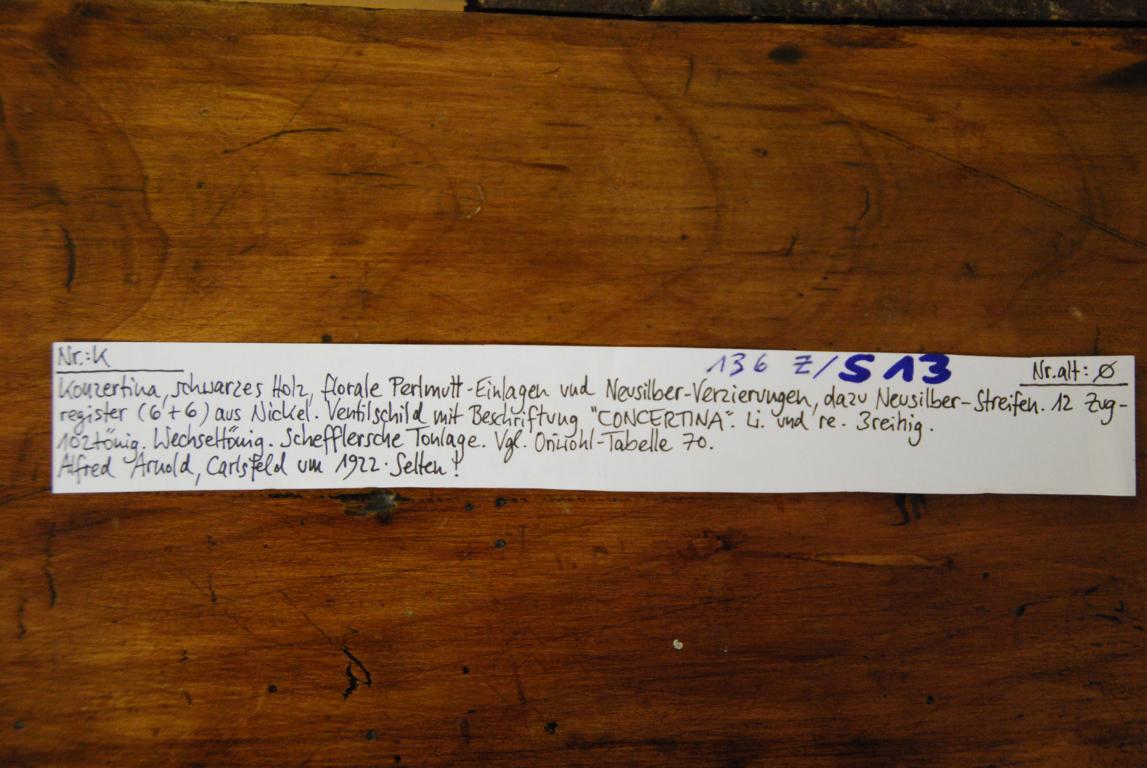 Nr.: K
136 Z/S 13
Nr. alt: Ø
Konzertina, schwarzes Holz, florale Perlmutt-Einlagen und Neusilber-Verzierungen, dazu Neusilber-Streifen. 12 Zug-
register (6+6) aus Nickel. Ventilschild mit Beschriftung "CONCERTINA". Li. und re. 3reihig.
102tönig. Wechseltönig. Schefflersche Tonlage. Vgl. -Tabelle 70.
Alfred Arnold, Carlsfeld um 1922. Selten!